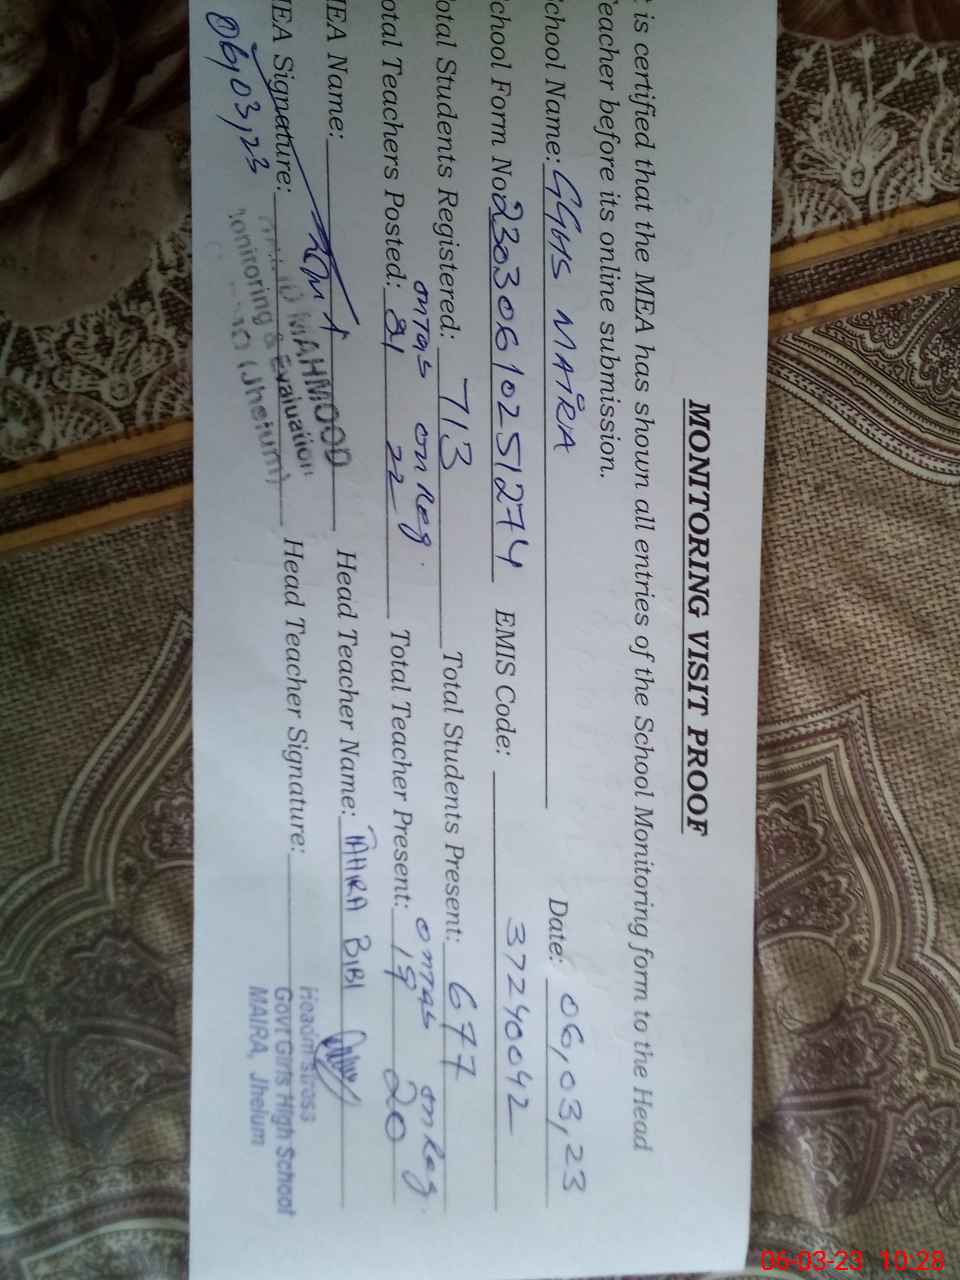 MONITORING VISIT PROOF
t is certified that the MEA has shown all entries of the School Monitoring form to the Head
Teacher before its online submission.
School Name: GGHS MAIRA Date: 06,03,23
School Form No: 23030610251274 EMIS Code: 37240042
Total Students Registered: 713 Total Students Present: 677
onTas on Reg. onTas on Reg.
Total Teachers Posted: 21 22 Total Teacher Present: 19 20
MEA Name: Head Teacher Name: TAHIRA BIBI
MEA Signature: Head Teacher Signature:
06,03,23
MAHMOOD
onitoring & Evaluation
(Jhelum)
Headmistress
Govt Girls High School
MAIRA, Jhelum
06-03-23 10:28